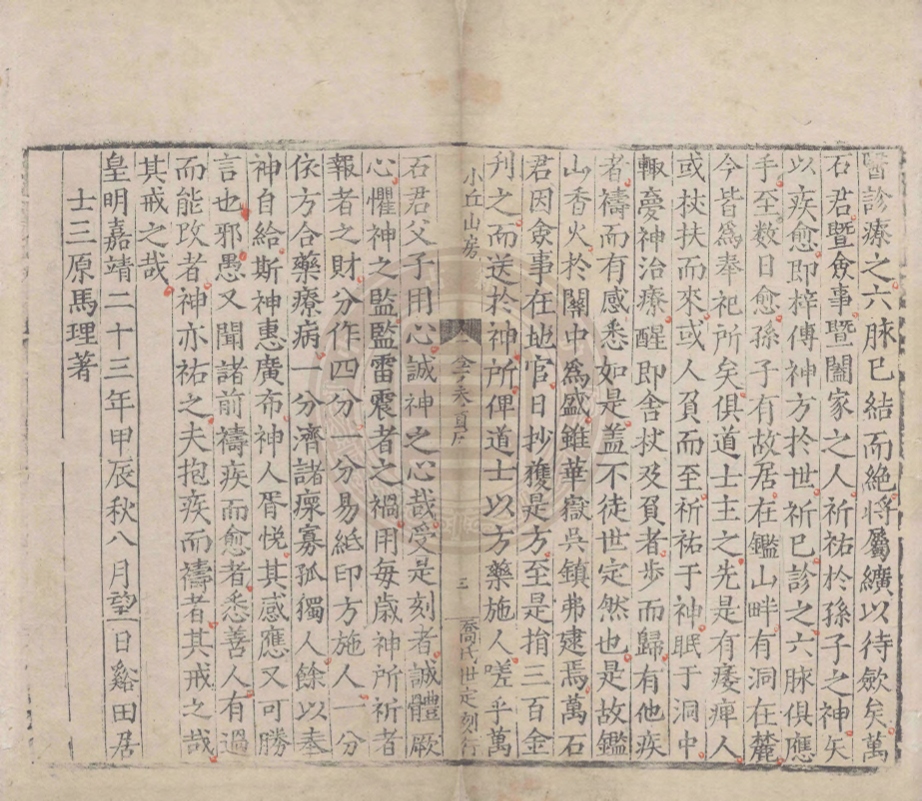 醫診療之六脉已結而絶將屬纊以待斂矣萬
石君暨僉事暨闔家之人祈祐於孫子之神矢
以疾愈即梓傳神方於世祈已診之六脉俱應
手至数日愈孫子有故居在鑑山畔有洞在麓
今皆爲奉祀所矣俱道士主之先是有痿痺人
或扙扶而來或人負而至祈祐于神眠于洞中
輙夣神治療醒即舎扙及負者步而歸有他疾
者禱而有感悉如是盖不徒世定然也是故鑑
山香火於關中爲盛雖華嶽吳鎮弗逮焉萬石
君因僉事在地官日抄獲是方至是捐三百金
刋之而送於神所俾道士以方藥施人嗟乎萬
小丘山房
三
喬氏世定刻行
石君父子用心誠神之心哉受是刻者誠體厥
心懼神之監監雷震者之禍用每歲神所祈者
報者之財分作四分一分易紙印方施人一分
依方合藥療病一分濟諸瘝寡孤獨人餘以奉
神自給斯神惠廣布神人胥悦其感應又可勝
言也邪愚又聞諸前禱疾而愈者悉善人有過
而能改者神亦祐之夫抱疾而禱者其戒之哉
其戒之哉
皇明嘉靖二十三年甲辰秋八月望日谿田居
士三原馬理著